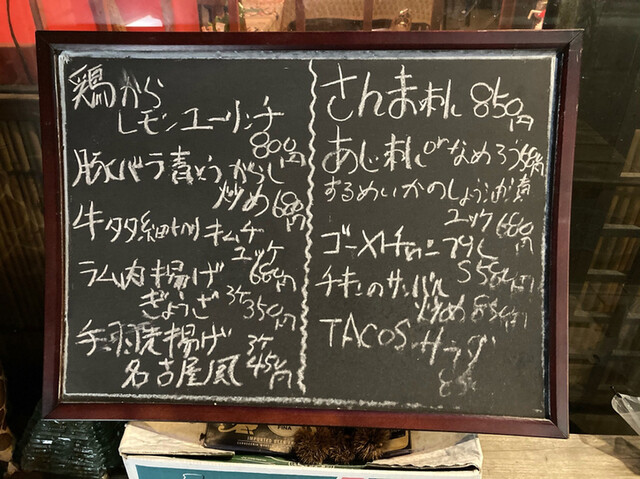 鶏から
レモンユーリンチ
800円
豚バラ青とうがらし
炒め 680円
牛タタ細切りキムチ
ユッケ
680円
ラム肉揚げ
ぎょうざ 3ケ 350円
手羽先揚げ 3ケ
名古屋風 450円
さんま刺し 850円
あじ刺し orなめろう
するめいかのしょう油漬
ユッケ 680円
ゴーヤ
チキンのサンバル
炒め
TACOS サラダ